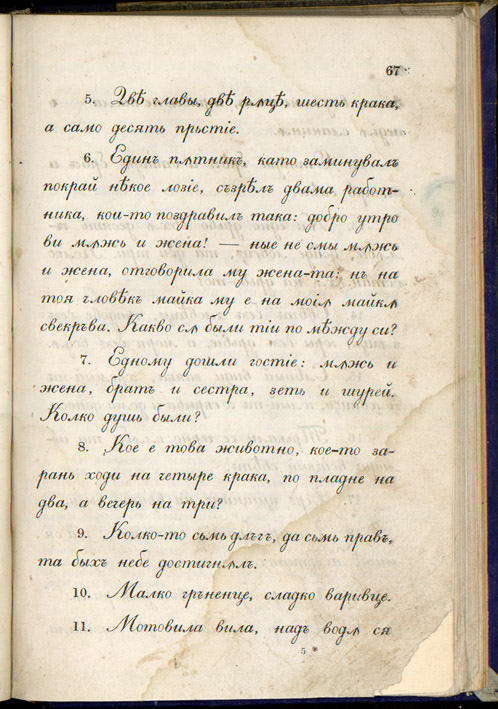 67
5. Двѣ главы, двѣ рѫцѣ, шесть крака,
а само десять пръстіе.
6. Единъ пѫтникъ, като заминувалъ
покрай нѣкое лозіе, съзрѣлъ двама работ-
ника, кои-то поздравилъ така: добро утро
ви мѫжь и жена! — ные не смы мѫжь
и жена, отговорила му жена-та: нъ на
тоя гловѣкъ майка му е на моіѭ майкѫ
свекръва. Какво сѫ были тіи по мѣжду си?
7. Едному дошли гостіе: мѫжь и
жена, братъ и сестра, зеть и шурей.
Колко душь были?
8. Кое е това животно, кое-то за-
рань ходи на четыре крака, по пладне на
два, а вечерь на три?
9. Колко-то сьмь длъгъ, да сьмь правъ,
та быхъ небе достигнѫлъ.
10. Малко гръненце, сладко варивце.
11. Мотовила вила, надъ водѫ ся
5 *